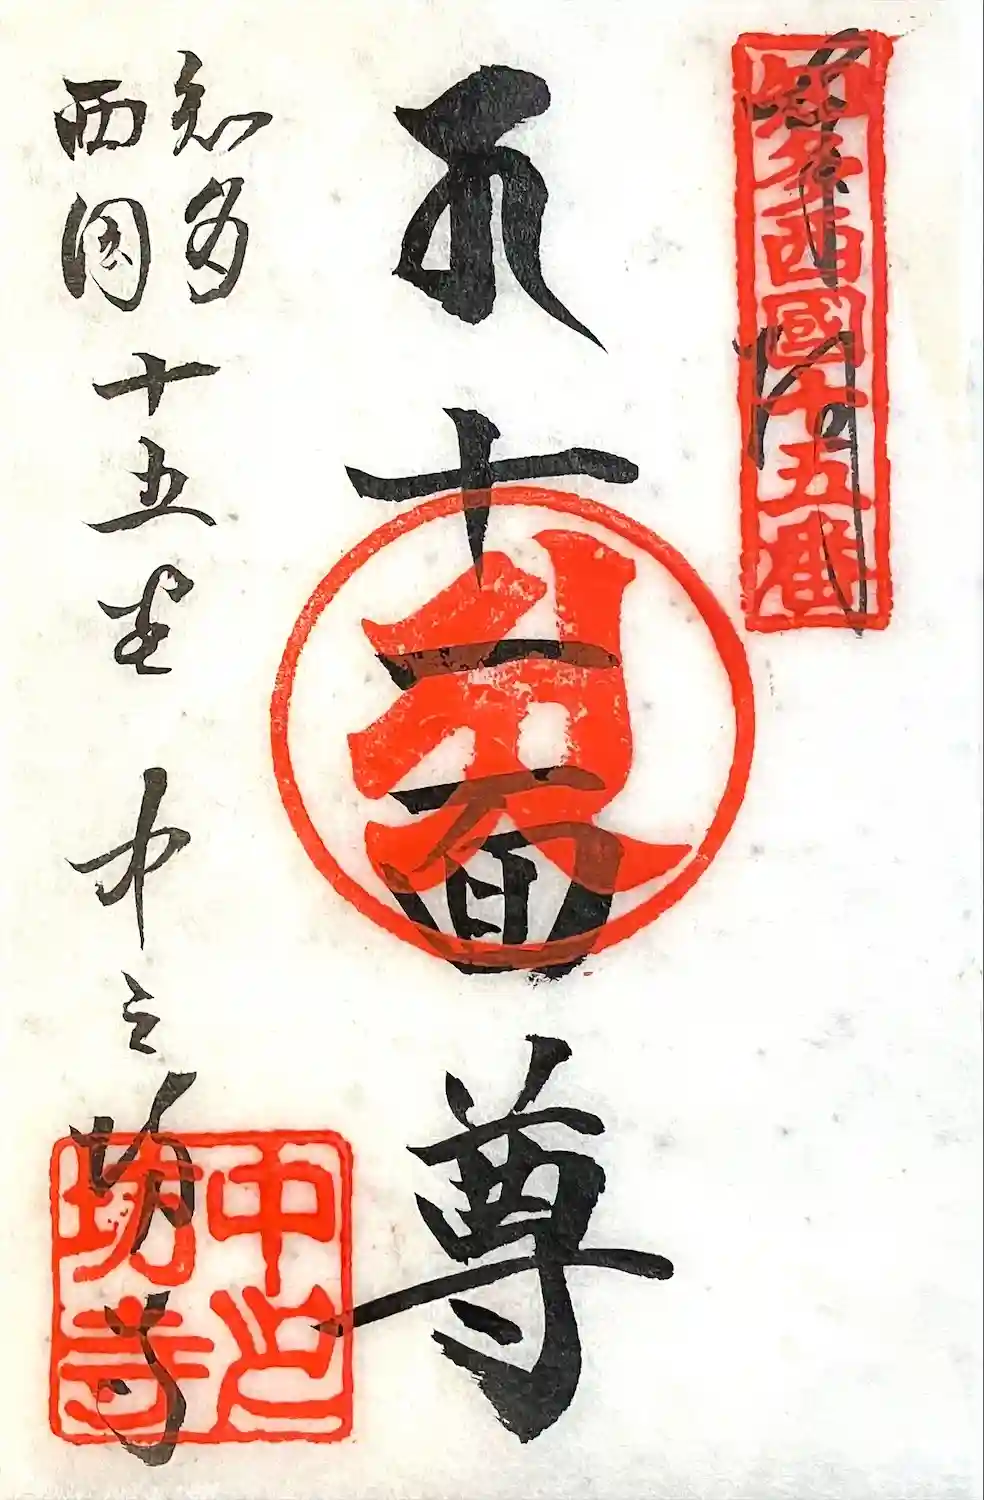 奉拝
知多西國十五番
十一面尊
知多
西国
十五番 中之坊寺
中之
坊寺